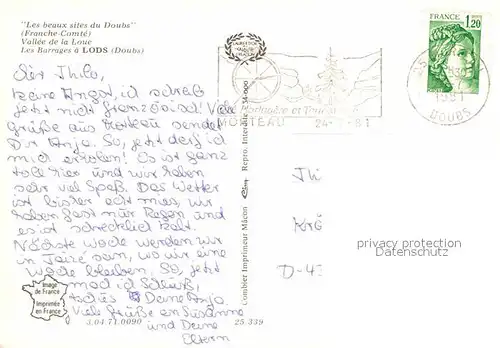 "Les beaux sites du Doubs"
(Franche-Comté)
Vallée de la Loue
Les Barrages à LODS (Doubs)
Lieber Thilo,
keine Angst, ich schreib
jetzt nicht französisch! Viele
Grüße aus Morteau sendet
Dir Anja. So, jetzt darf ich
mich erholen! Es ist ganz
toll hier und wir haben
sehr viel Spaß. Das Wetter
ist bisher echt mies, wir
haben fast nur Regen und
es ist schrecklich kalt.
Nächste Woche werden wir
in sein, wo wir eine
Woche bleiben. So, jetzt
mach ich Schluß,
tschüs Deine Anja.
Viele Grüße an Susanne
und Deine
Eltern
Image
de France
Imprimée
en France
3.04.71.0090
25 339
Combier Imprimeur Mâcon
Repro. Interdite
FRANCE
1,20
MORTEAU
24-7-81
1981
DOUBS
Th
Krö
D-43
privacy protection
Datenschutz